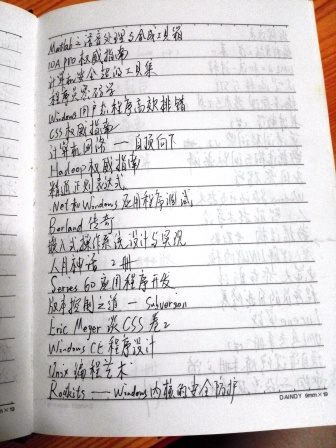 Matlab之语音处理与合成工具箱
IDA PRO权威指南
计算机安全超级工具集
程序员密码学
Windows用户态程序高效排错
CSS权威指南
计算机网络——自顶向下
Hadoop权威指南
精通正则表达式
.Net和Windows应用程序调试
Borland传奇
嵌入式操作系统设计与实现
人月神话 2册
Series 60应用程序开发
版本控制之道—Subversion
Eric Meyer谈CSS卷2
Windows CE程序设计
Unix编程艺术
Rootkits——Windows内核的安全防护
DAINDY 9mm×19